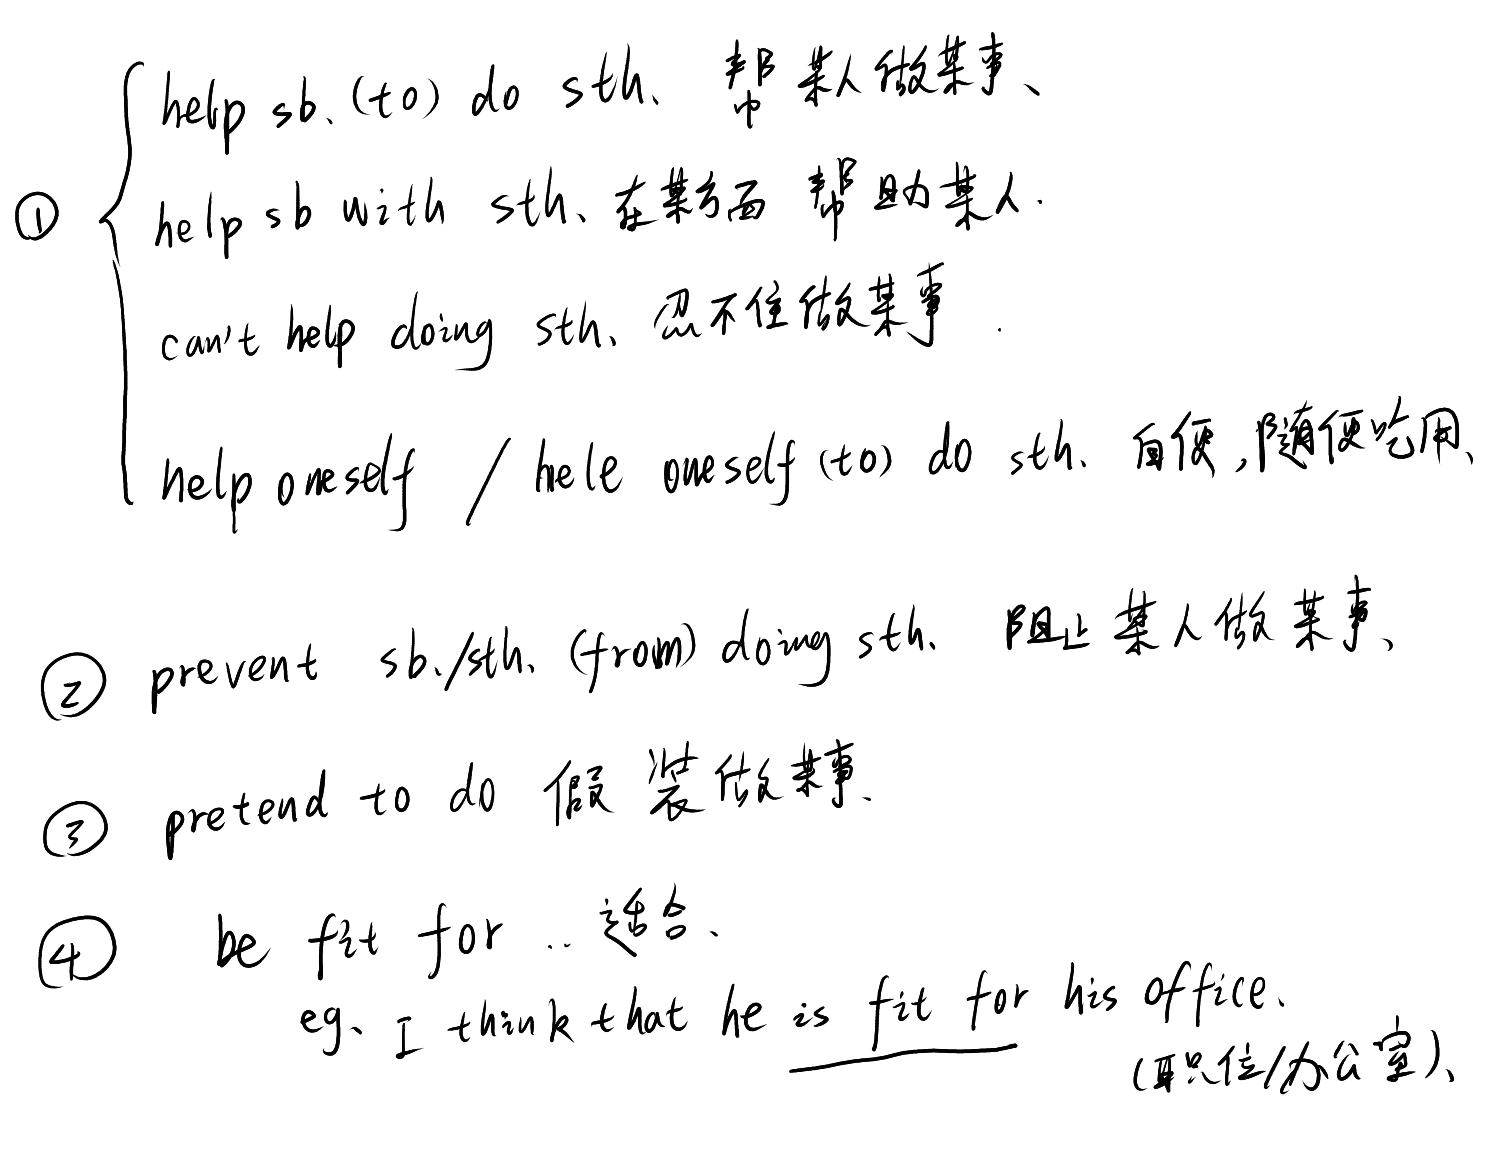 ① help sb. (to) do sth. 帮某人做某事、
help sb with sth、在某方面 帮助某人.
can't help doing sth、忍不住做某事.
help oneself / hele oneself (to) do sth. 自便,随便吃用、
② prevent sb./sth. (from) doing sth. 阻止某人做某事、
③ pretend to do 假装做某事.
④ be fit for .. 适合、
eg、I think that he is fit for his office.
(职位/办公室)、